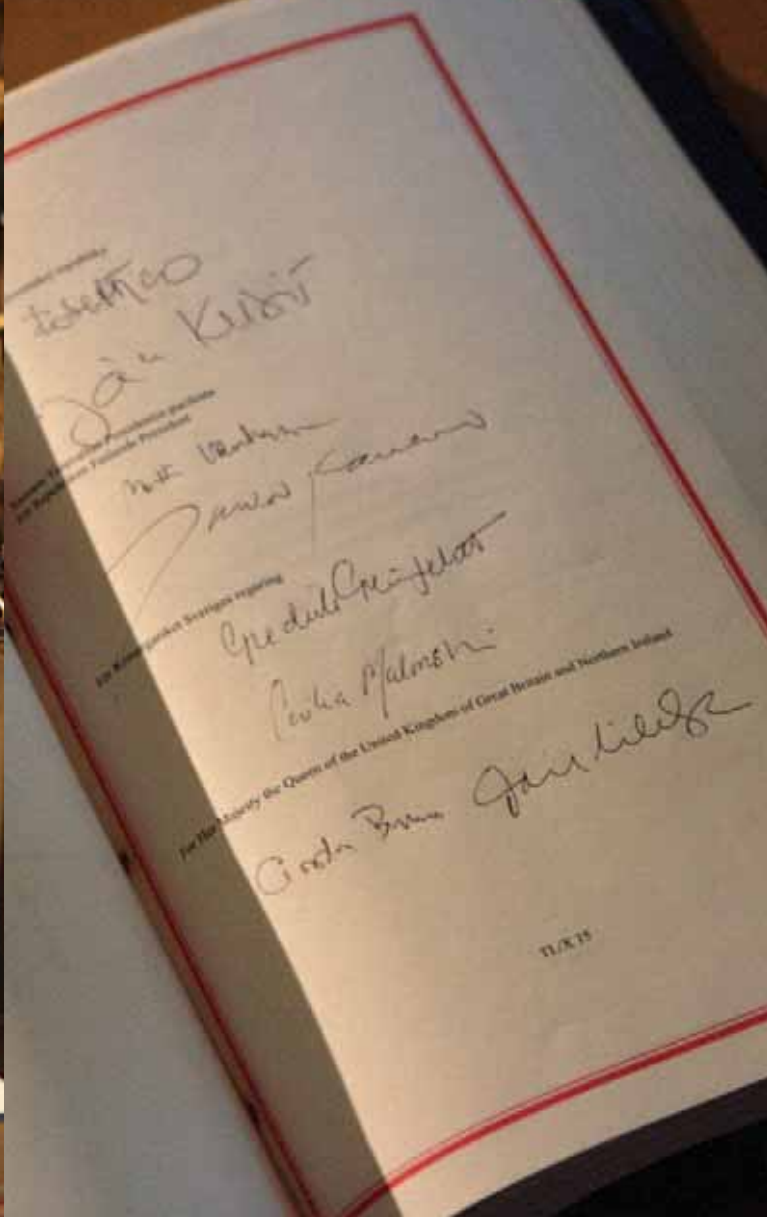 Ján Kubiš
Suomen Tasavallan Presidentin puolesta
För Republiken Finlands President
Matti Vanhanen
För Konungariket Sveriges regering
Cecilia Malmström
For Her Majesty the Queen of the United Kingdom of Great Britain and Northern Ireland
Gordon Brown David Miliband
TL/X 15